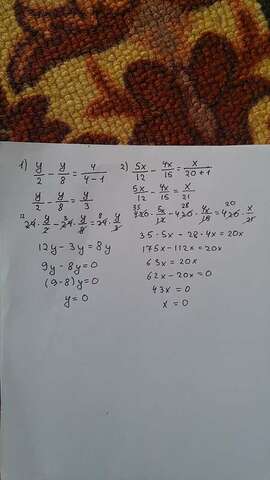 1) y/2 - y/8 = y/(4-1)
y/2 - y/8 = y/3
12 24 · y/2 - 3 24 · y/8 = 8 24 · y/3
12y - 3y = 8y
9y - 8y = 0
(9-8)y = 0
y = 0
2) 5x/12 - 4x/15 = x/(20+1)
5x/12 - 4x/15 = x/21
35 420 · 5x/12 - 28 420 · 4x/15 = 20 420 · x/21
35 · 5x - 28 · 4x = 20x
175x - 112x = 20x
63x = 20x
63x - 20x = 0
43x = 0
x = 0